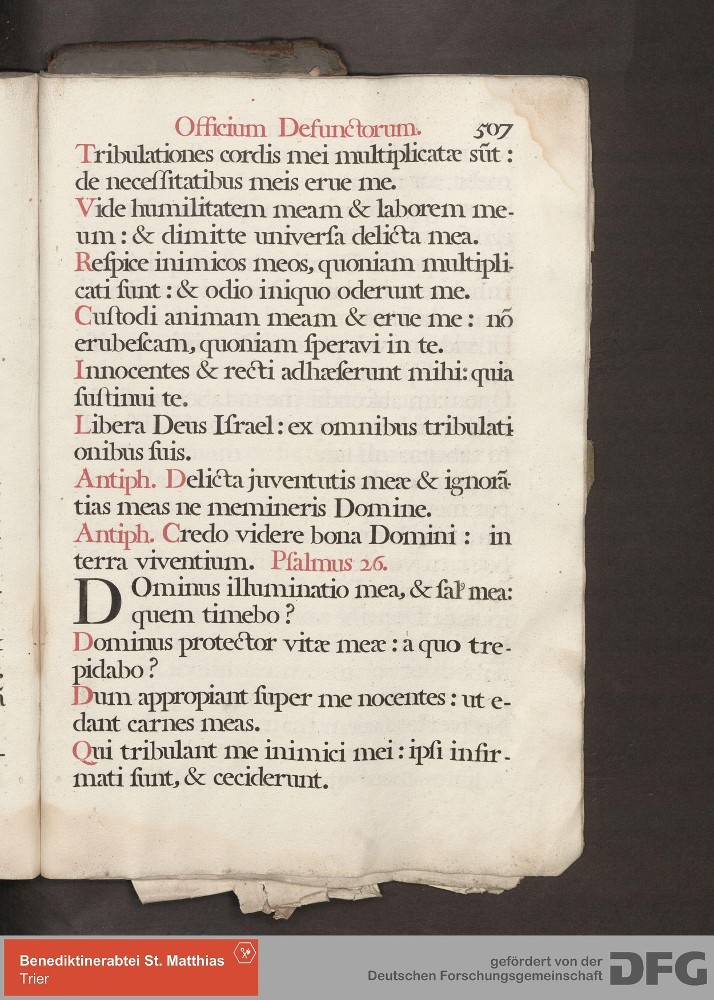 Officium Defunctorum. 507
Tribulationes cordis mei multiplicatæ sũt :
de neceſſitatibus meis erue me.
Vide humilitatem meam & laborem me-
um : & dimitte univerſa delicta mea.
Reſpice inimicos meos, quoniam multipli-
cati ſunt : & odio iniquo oderunt me.
Cuſtodi animam meam & erue me : nõ
erubeſcam, quoniam ſperavi in te.
Innocentes & recti adhæſerunt mihi: quia
ſuſtinui te.
Libera Deus Iſrael : ex omnibus tribulati-
onibus ſuis.
Antiph. Delicta juventutis meæ & ignorã-
tias meas ne memineris Domine.
Antiph. Credo videre bona Domini : in
terra viventium. Pſalmus 26.
DOminus illuminatio mea, & ſalꝰ mea:
quem timebo ?
Dominus protector vitæ meæ : à quo tre-
pidabo ?
Dum appropiant ſuper me nocentes : ut e-
dant carnes meas.
Qui tribulant me inimici mei : ipſi infir-
mati ſunt, & ceciderunt.
Benediktinerabtei St. Matthias
Trier
gefördert von der
Deutschen Forschungsgemeinschaft
DFG